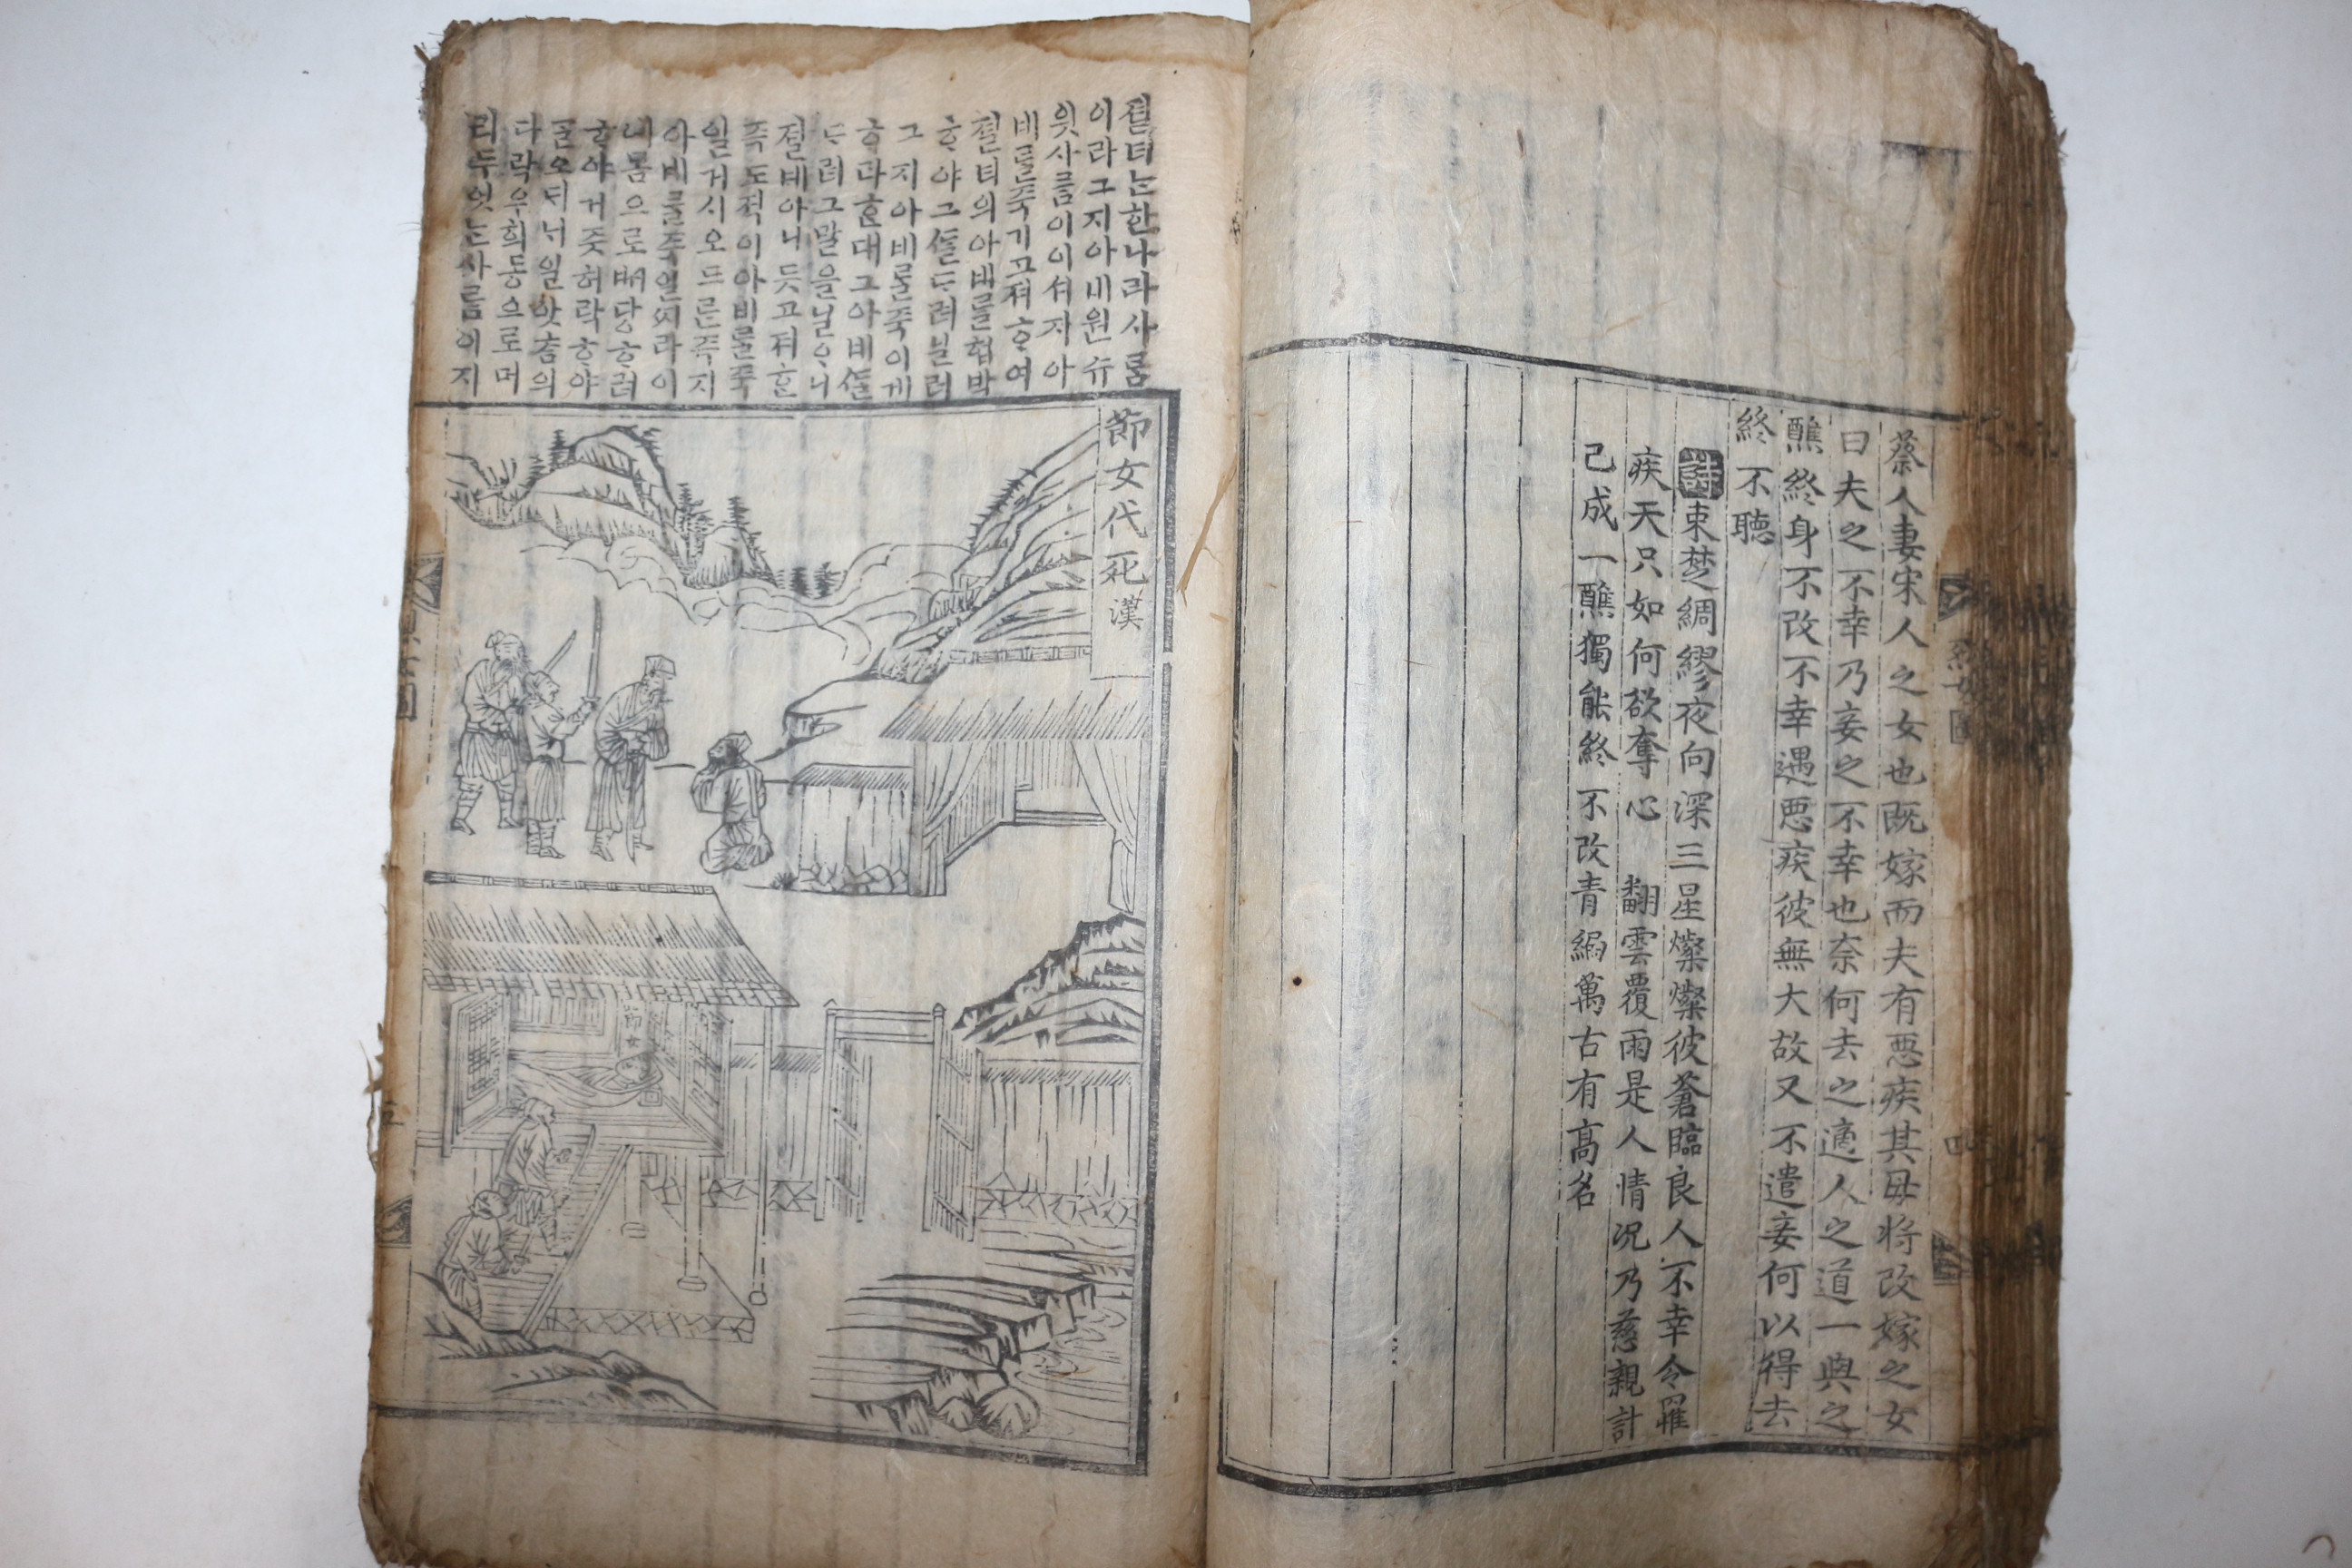 蔡人妻宋人之女也既嫁而夫有悪疾其母將改嫁之女
曰夫之不幸乃妾之不幸也奈何去之適人之道一與之
醮終身不改不幸遇悪疾彼無大故又不遣妾何以得去
終不聽
詩束楚綢繆夜向深三星燦燦彼蒼臨良人不幸令罹
疾天只如何欲奪心 翻雲覆雨是人情况乃慈親計
已成一醮獨能終不改青編萬古有髙名
四
졀녀ᄂᆞᆫ한나라사ᄅᆞᆷ
이라그지아비원슈
읫사ᄅᆞᆷ이이셔지아
비ᄅᆞᆯ죽기고져ᄒᆞ여
졀녀의아비ᄅᆞᆯ협박
ᄒᆞ야그ᄯᆞᆯᄃᆞ려닐러
그지아비ᄅᆞᆯ죽이게
ᄒᆞ라ᄒᆞᆫ대그아비ᄯᆞᆯ
ᄃᆞ려그말을닐ᄋᆞ니
졀녜아니듯고져ᄒᆞᆫ
즉도적이아비ᄅᆞᆯ죽
일거시오드른즉지
아비ᄅᆞᆯ죽일ᄶᅵ라이
내몸으로ᄡᅥ당ᄒᆞ려
ᄒᆞ야거즛허락ᄒᆞ야
ᄀᆞᆯ오ᄃᆡ너일앗ᄎᆞᆷ의
다락우희동으로머
리두엇ᄂᆞᆫ사ᄅᆞᆷ이지
節女代死漢
節女
五